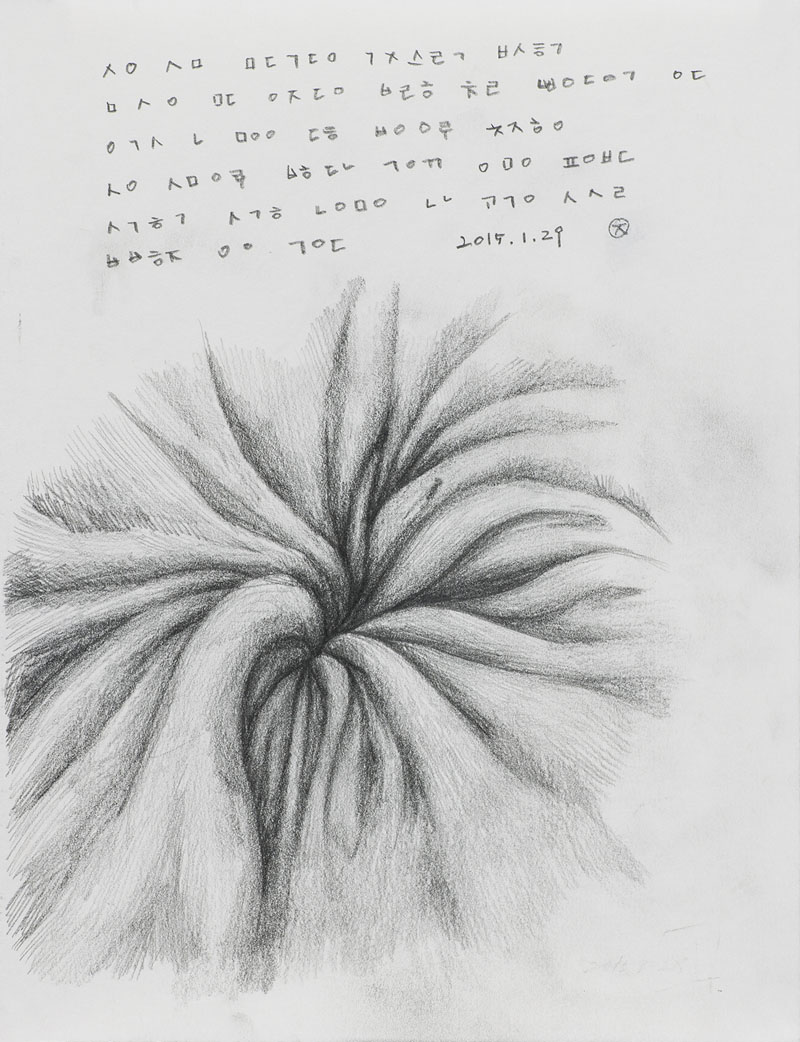 ㅅㅇ ㅅㅁ ㅁㄷㄱㄷㅇ ㄱㅈㅅㄹㄱ ㅂㅅㅎㄱ
ㅁㅅㅇ ㅁㄷ ㅇㅈㄷㅇ ㅂㄹㅎ ㅊㄹ ㅃㅇㄷㅇㄱ ㅇㄷ
ㅇㄱㅅ ㄴ ㅁㅇㅇ ㄷㅎ ㅂㅇㅇ루 ㅊㅈㅎㅇ
ㅅㅇ ㅅㅁㅇ루 ㅂㅎ ㄷㄴ ㄱㅇㄲ ㅇㅁㅇ ㅍㅇㅂㄷ
ㅅㄱㅎㄱ ㅅㄱㅎ ㄴㅇㅁㅇ ㄴㄴ ㄱㄱㅇ ㅅㅅㄹ
ㅂㅂㅎㅈ ㅇㅇ ㄱㅇㄷ 2015.1.29 ㅈ